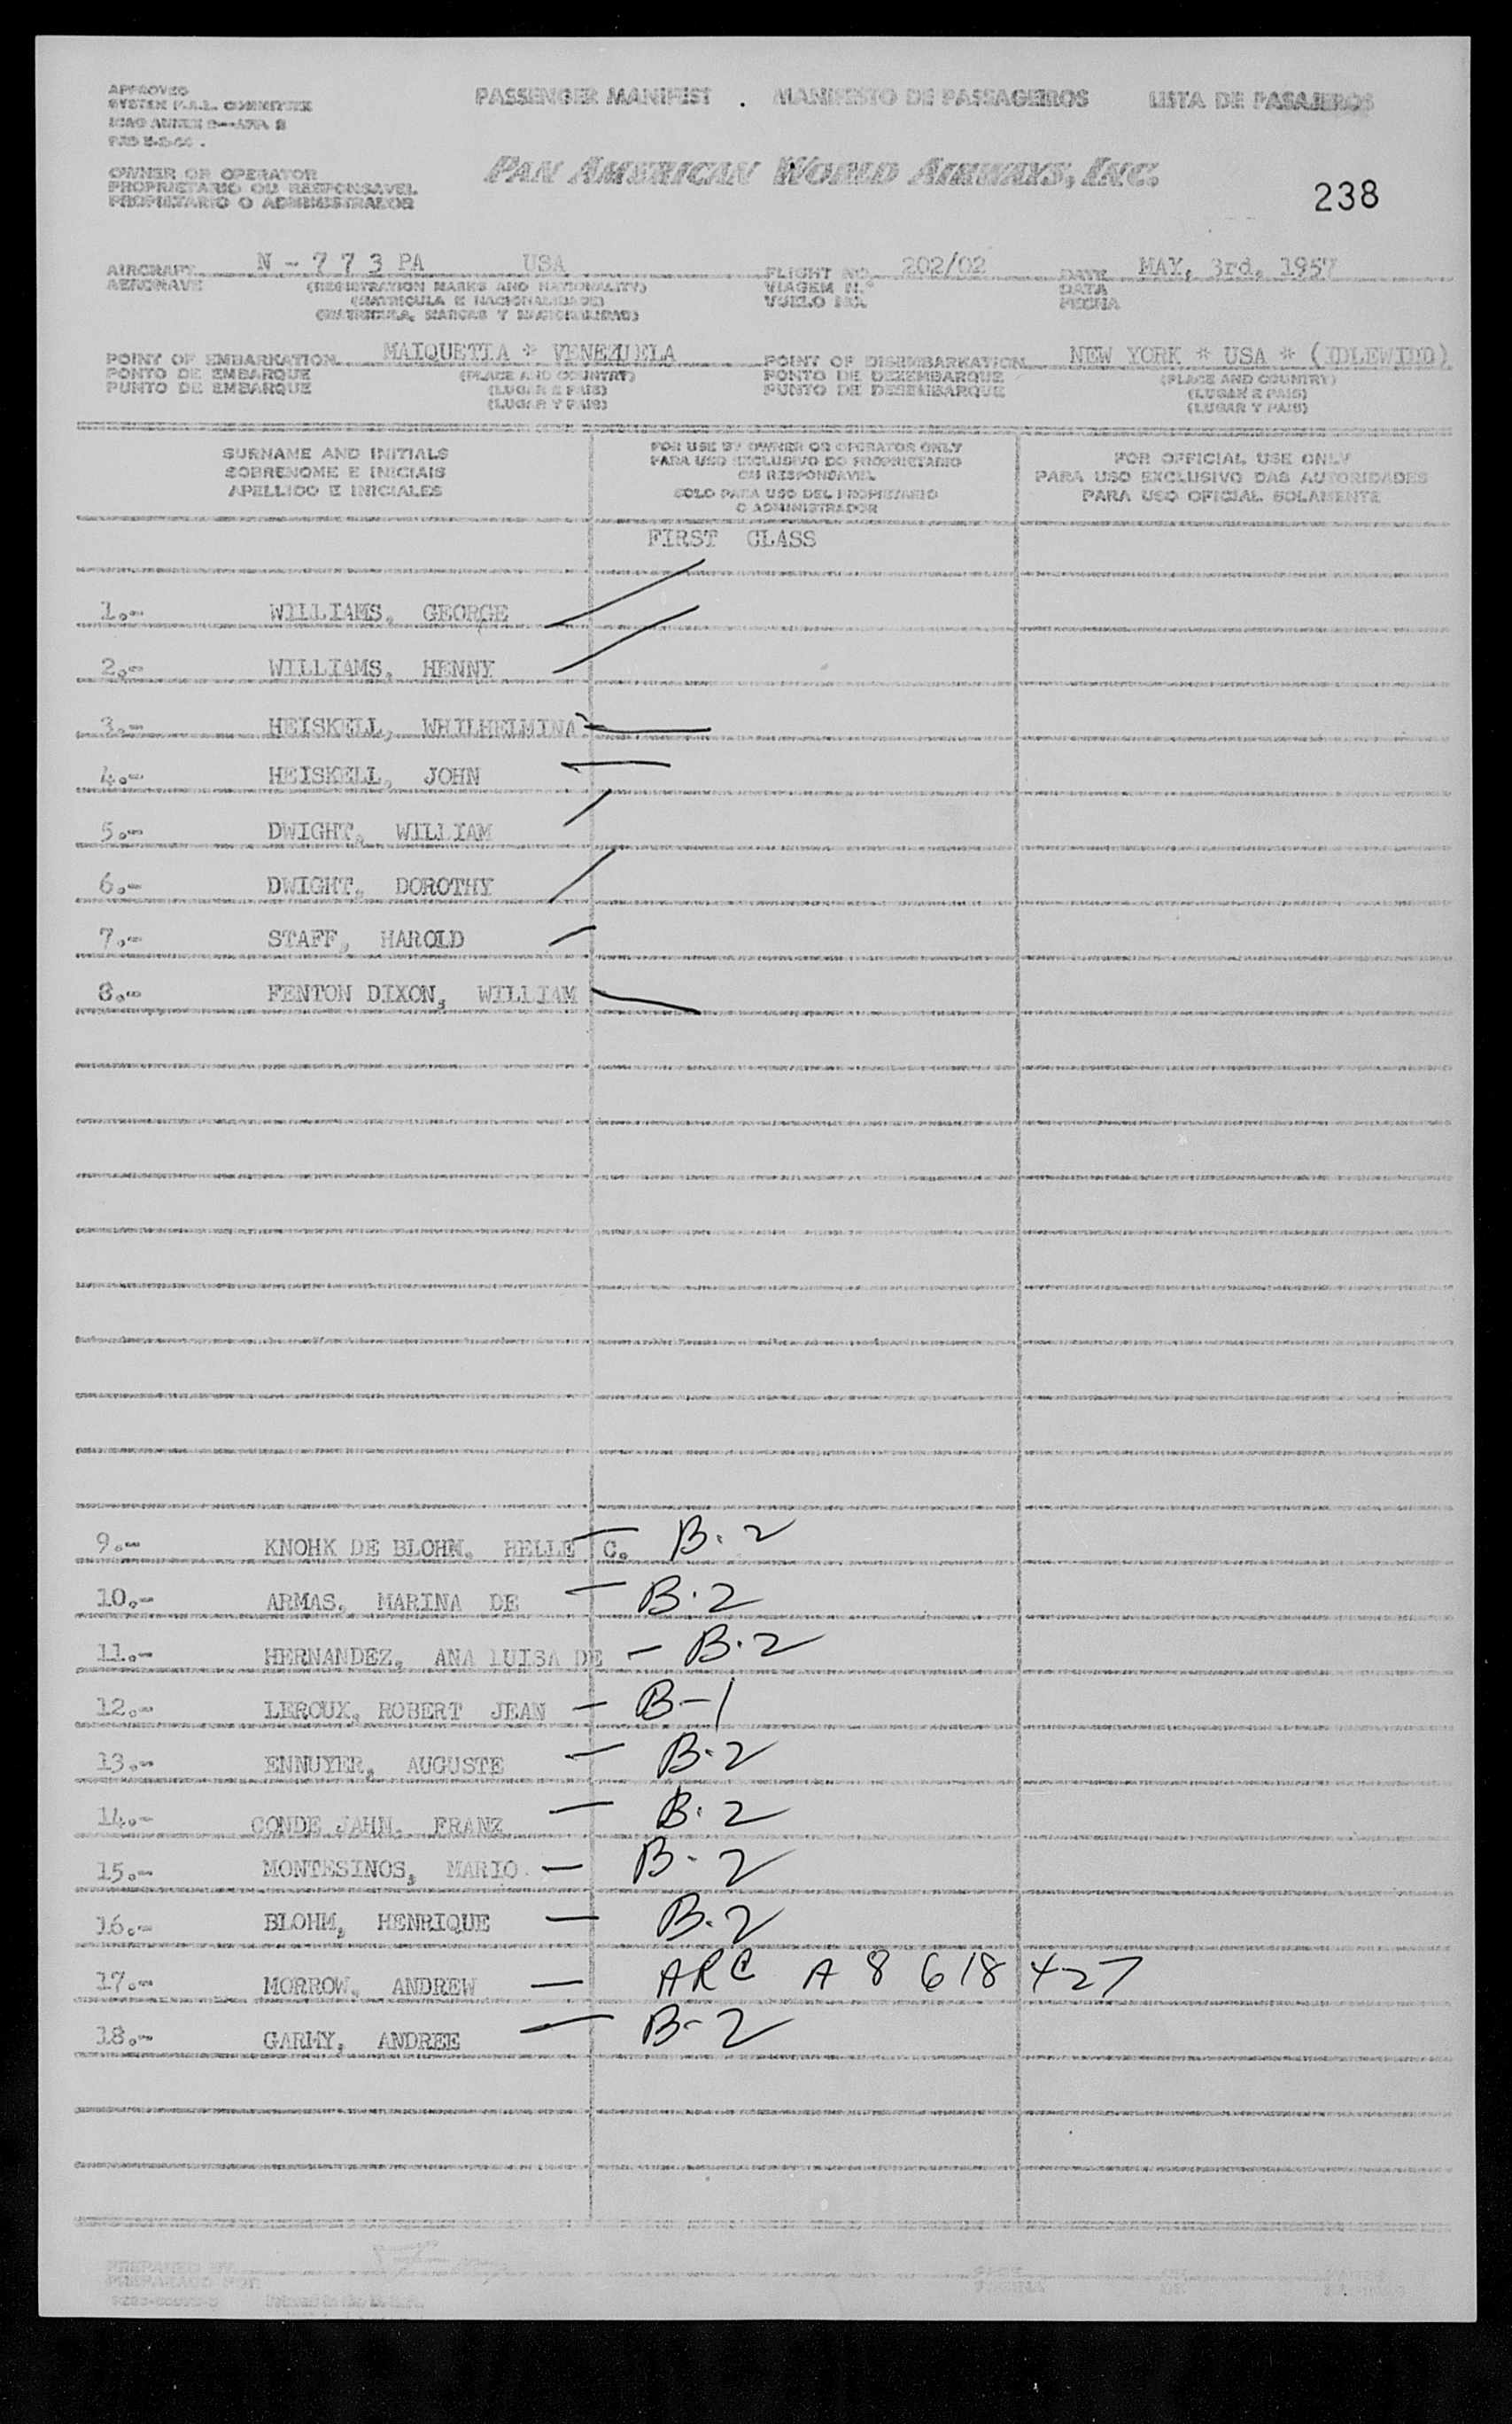 APPROVED
SYSTEM F.A.L. COMMITTEE
ICAO ANNEX 9--APP. 2
PASSENGER MANIFEST . MANIFESTO DE PASSAGEIROS LISTA DE PASAJEROS
OWNER OR OPERATOR
PROPRIETARIO OU RESPONSAVEL
PROPIETARIO O ADMINISTRADOR
PAN AMERICAN WORLD AIRWAYS, INC.
238
AIRCRAFT N - 7 7 3 PA USA FLIGHT NO. 202/02 DATE MAY, 3rd, 1957
AERONAVE (REGISTRATION MARKS AND NATIONALITY) VIAGEM N.º DATA
(MATRICULA E NACIONALIDADE) VUELO No. FECHA
(MATRICULA, MARCAS Y NACIONALIDAD)
POINT OF EMBARKATION MAIQUETIA * VENEZUELA POINT OF DISEMBARKATION NEW YORK * USA * (IDLEWIDD)
PONTO DE EMBARQUE (PLACE AND COUNTRY) PONTO DE DEZEMBARQUE (PLACE AND COUNTRY)
PUNTO DE EMBARQUE (LUGAR E PAIS) PUNTO DE DESEMBARQUE (LUGAR E PAIS)
(LUGAR Y PAIS) (LUGAR Y PAIS)
SURNAME AND INITIALS
SOBRENOME E INICIAIS
APELLIDO E INICIALES
FOR USE BY OWNER OR OPERATOR ONLY
PARA USO EXCLUSIVO DO PROPRIETARIO
OU RESPONDAVEL
SOLO PARA USO DEL PROPIETARIO
O ADMINISTRADOR
FOR OFFICIAL USE ONLY
PARA USO EXCLUSIVO DAS AUTORIDADES
PARA USO OFICIAL SOLAMENTE
FIRST CLASS
1.- WILLIAMS, GEORGE
2.- WILLIAMS, HENNY
3.- HEISKELL, WHILHELMINA
4.- HEISKELL, JOHN
5.- DWIGHT, WILLIAM
6.- DWIGHT, DOROTHY
7.- STAFF, HAROLD
8.- FENTON DIXON, WILLIAM
9.- KNOHK DE BLOHN, HELLE C. B.2
10.- ARMAS, MARINA DE B.2
11.- HERNANDEZ, ANA LUISA DE - B.2
12.- LEROUX, ROBERT JEAN - B-1
13.- ENNUYER, AUGUSTE - B.2
14.- CONDE JAHN, FRANZ - B.2
15.- MONTESINOS, MARIO - B-2
16.- BLOHM, HENRIQUE - B.2
17.- MORROW, ANDREW - ARC A 8 618 427
18.- GARMY, ANDREE - B-2
PREPARED BY
PREPARADO POR